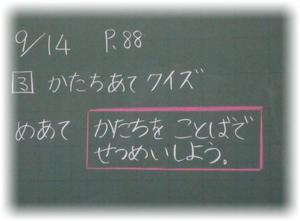 9/14 P.88
3 かたちあて クイズ
めあて かたちを ことばで
せつめいしよう。